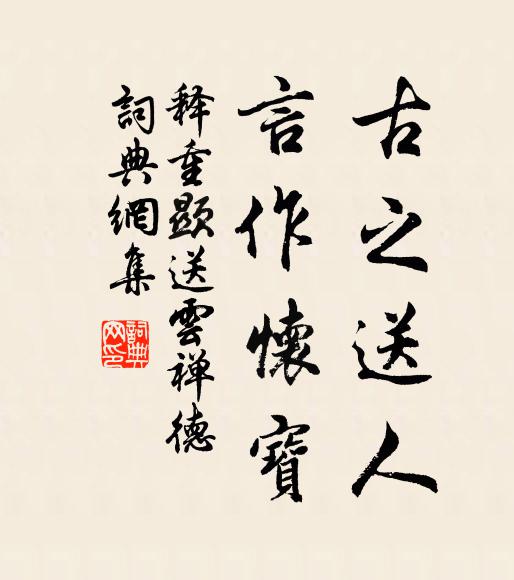 古之送人
言作懷寶
释重顯送雲禅德
詞典網集
詞典網印